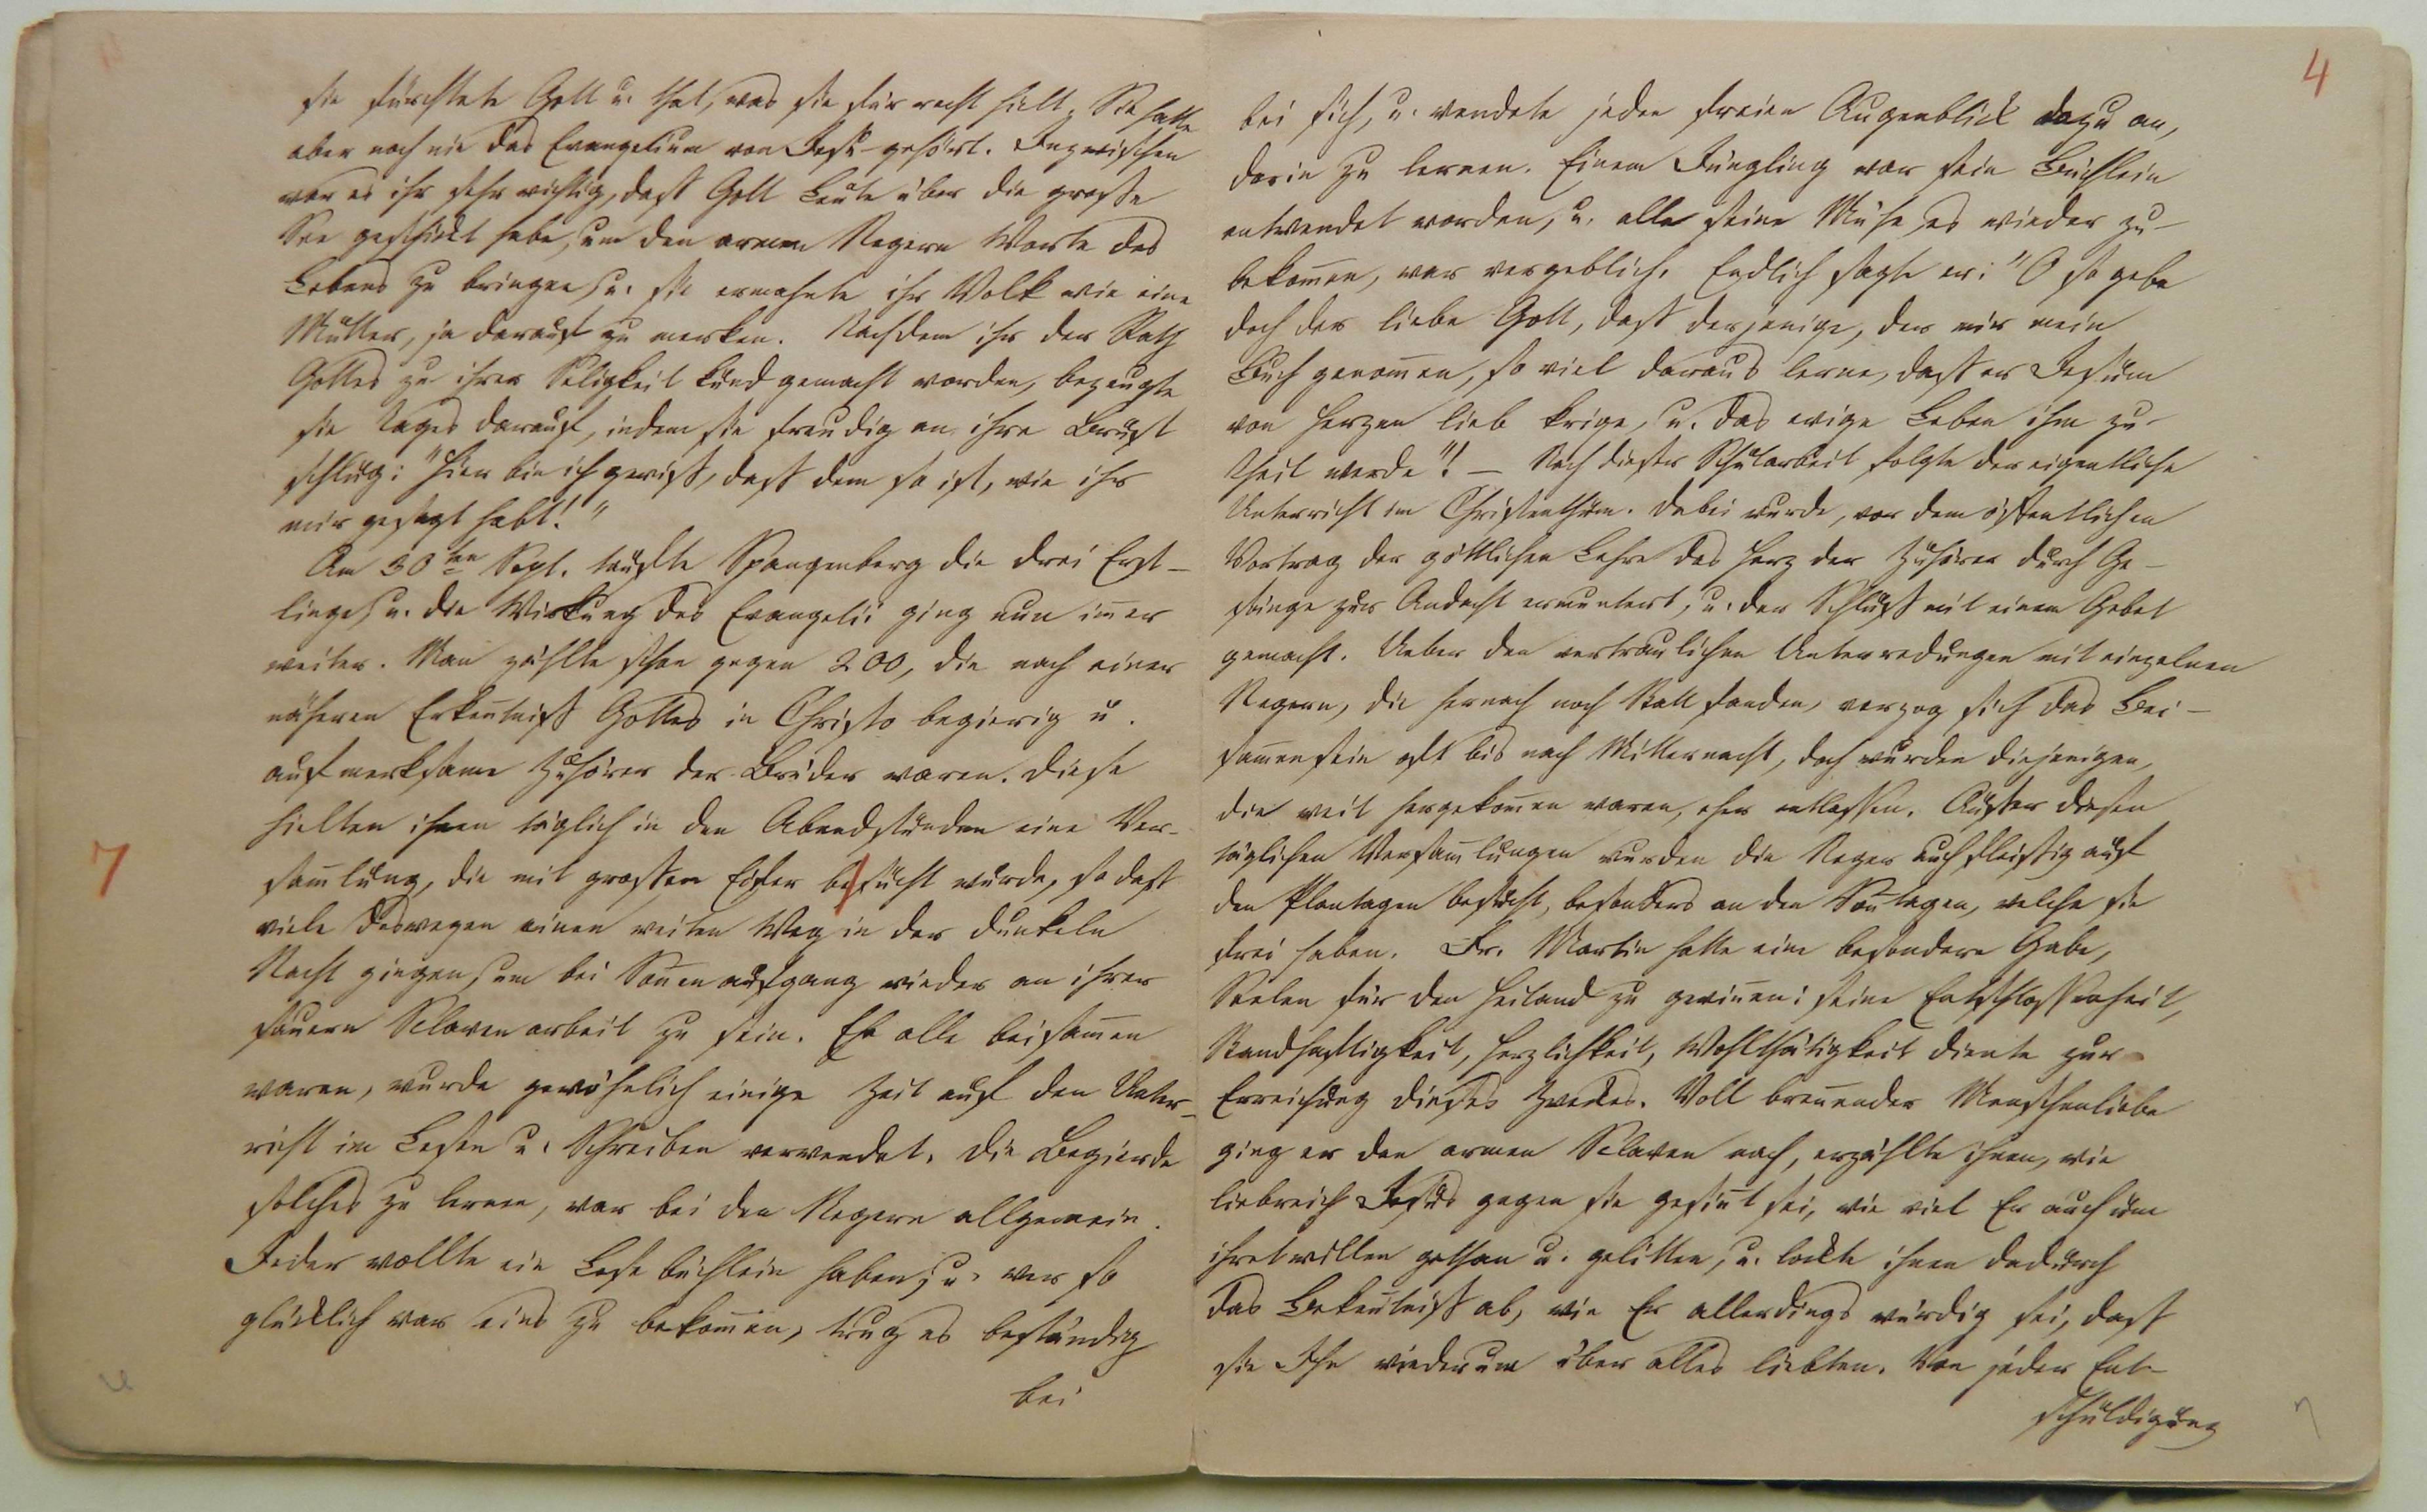 sie fürchtete Gott u. that, was sie für recht hielt. Sie hatte
aber noch nie das Evangelium von Jesu gehört. Inzwischen
war es ihr sehr wichtig, daß Gott Leute über die große
See geschickt habe, um den armen Negern Worte des
Lebens zu bringen, u. sie ermahnte ihr Volk wie eine
Mutter, ja darauf zu merken. Nachdem ihr der Rath
Gottes zu ihrer Seligkeit kund gemacht worden, bezeugte
sie Tages darauf, indem sie freudig an ihre Brust
schlug: "Hier bin ich gewiß, daß dem so ist, wie ihr
mir gesagt habt!"
Am 30ten Sept. taufte Spangenberg die drei Erst-
linge, u. die Wirkung des Evangelii ging nun im̄er
weiter. Man zählte schon gegen 200, die nach einer
näheren Erkentniß Gottes in Christo begierig u.
aufmerksame Zuhörer der Brüder waren. Diese
hielten ihnen täglich in den Abendstunden eine Ver-
sam̄lung, die mit großem Eifer besucht wurde, so daß
7
viele deswegen einen weiten Weg in der dunkeln
Nacht gingen, um bei Son̄enaufgang wieder an ihrer
sauern Sclavenarbeit zu sein. Ehe alle beisam̄en
waren, wurde gewöhnlich einige Zeit auf den Unter-
richt im Lesen u. Schreiben verwendet. Die Begierde
solches zu lernen, war bei den Negern allgemein.
Jeder wollte ein Lesebüchlein haben, u. wer so
glücklich war eins zu bekom̄en, trug es beständig
bei
4
bei sich, u. wendete jeden freien Augenblick dazu an,
darin zu lernen. Einem Jüngling war sein Büchlein
entwendet worden, u. alle seine Mühe, es wieder zu-
bekom̄en, war vergeblich. Endlich sagte er: "O so gebe
doch der liebe Gott, daß derjenige, der mir mein
Buch genom̄en, so viel daraus lerne, daß er Jesum
von Herzen lieb krige, u. das ewige Leben ihm zu-
theil werde"! – Nach dieser Schularbeit folgte der eigentliche
Unterricht im Christenthum. Dabei wurde, vor dem öffentlichen
Vortrag der göttlichen Lehre das Herz der Zuhörer durch Ge-
sänge zur Andacht ermuntert, u. der Schluß mit einem Gebet
gemacht. Ueber den vertraulichen Unterredungen mit einzelnen
Negern, die hernach noch Statt fanden, verzog sich das Bei-
sam̄ensein oft bis nach Mitternacht, doch wurden diejenigen,
die weit hergekom̄en waren, eher entlassen. Außer diesen
täglichen Versam̄lungen wurden die Neger auch fleißig auf
den Plantagen besucht, besonders an den Son̄tagen, welche sie
frei haben. Fr. Martin hatte eine besondere Gabe,
Seelen für den Heiland zu gewin̄en: seine Entschlossenheit,
Standhaftigkeit, Herzlichkeit, Wohlthätigkeit diente zur
Erreichung dieses Zweckes. Voll bren̄ender Menschenliebe
ging er den armen Sclaven nach, erzählte ihnen, wie
liebreich Jesus gegen sie gesin̄t sei, wie viel Er auch um
ihretwillen gethan u. gelitten, u. lockte ihnen dadurch
das Beken̄tniß ab, wie Er allerdings würdig sei, daß
sie Ihn wiederum über alles liebten. Von jeder Ent-
schuldigung